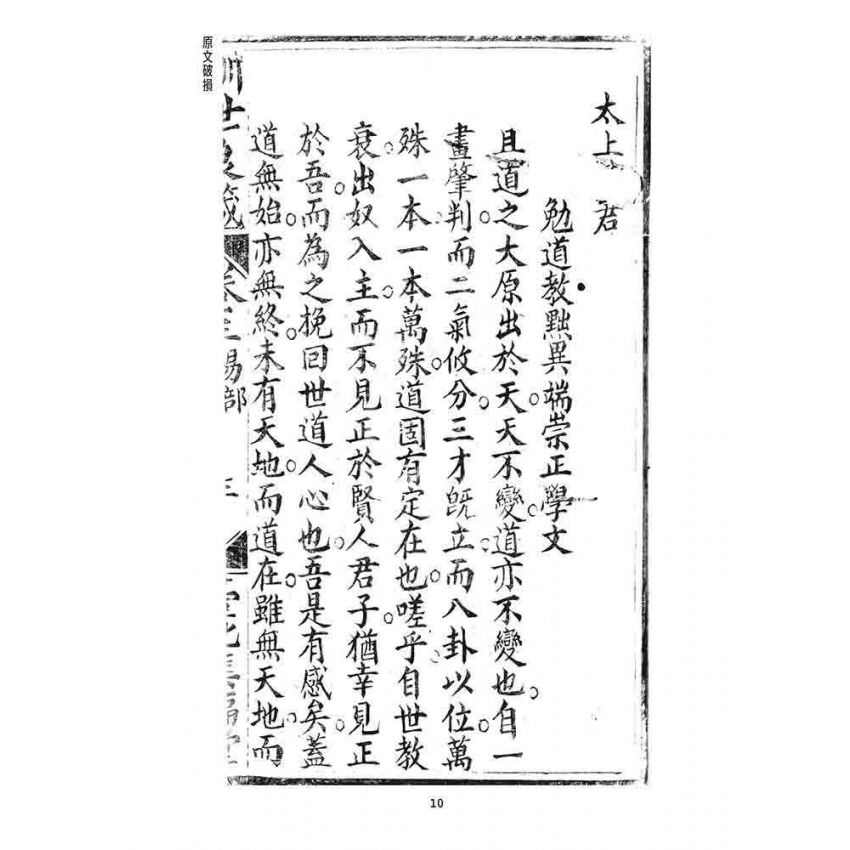 太上 君
勉道教黜異端崇正學文
且道之大原出於天。天不變。道亦不變也。自一
畫肇判。而二氣攸分。三才旣立。而八卦以位。萬
殊一本一本萬殊。道固有定在也。嗟乎自世教
衰。出奴入主。而不見正於賢人君子。猶幸見正
於吾。而為之挽回世道人心也。吾是有感矣。蓋
道無始。亦無終。未有天地。而道在。雖無天地。而
卷三 部 三
原文破損
10